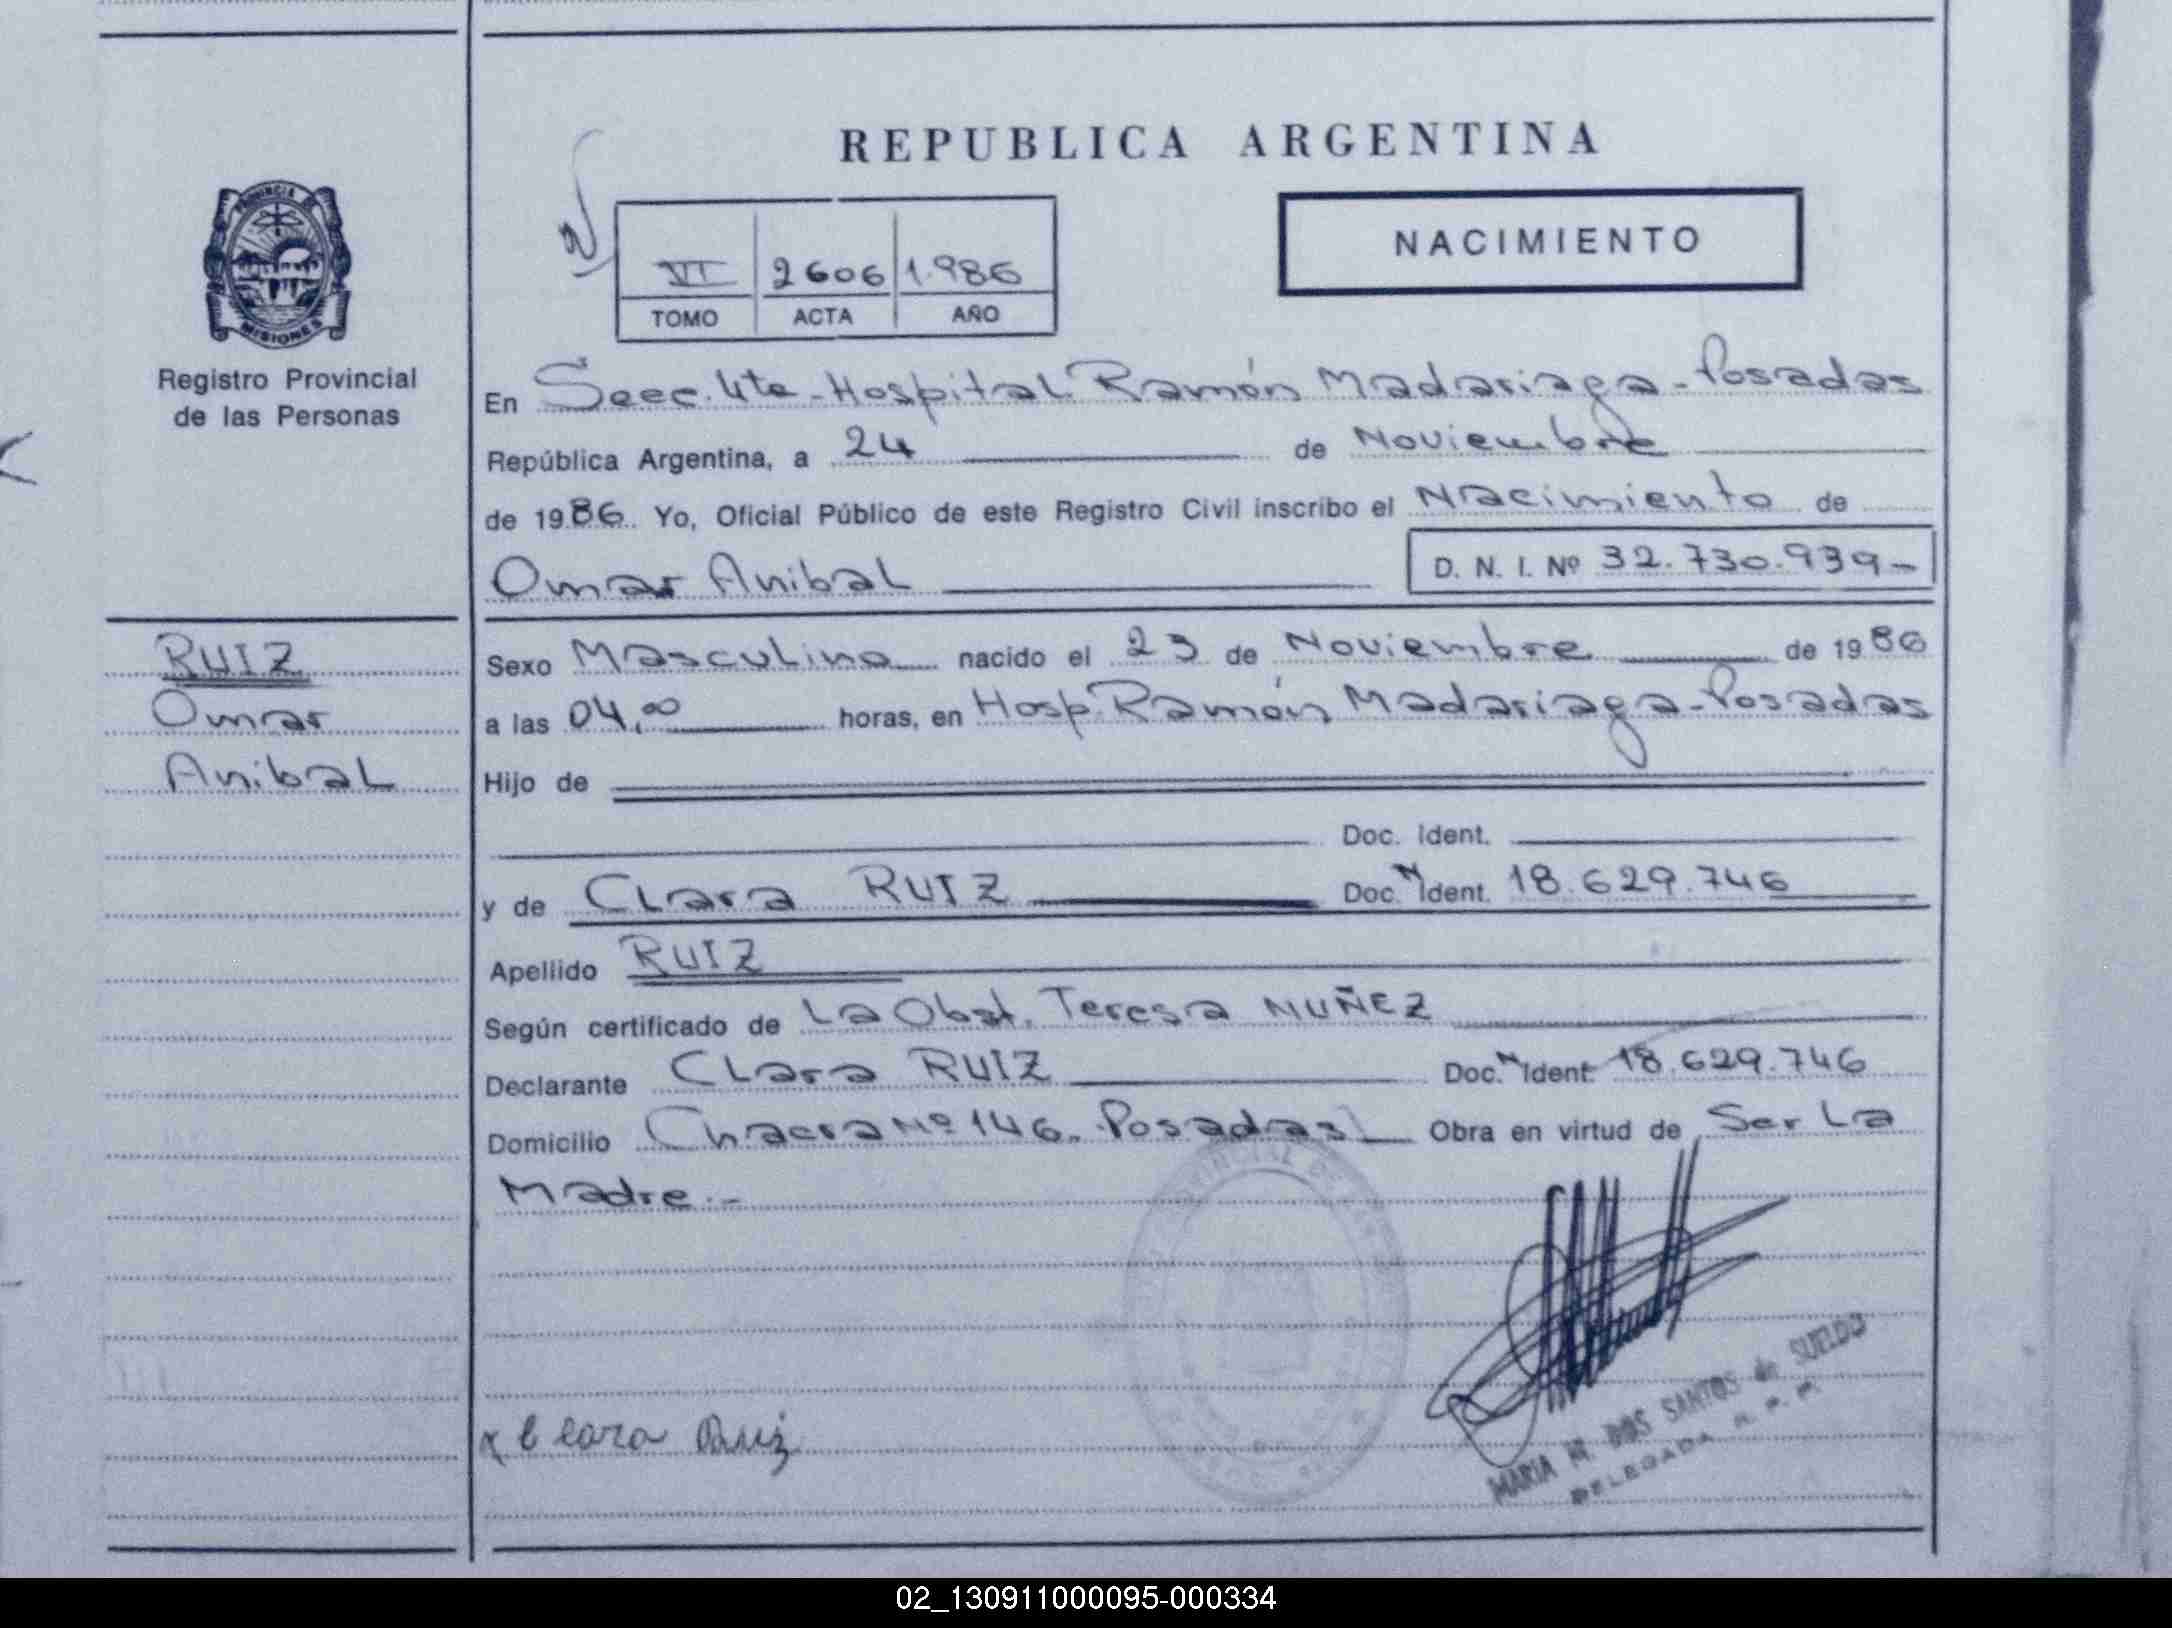 REPUBLICA ARGENTINA
PROVINCIA DE
MISIONES
Registro Provincial
de las Personas
VI 2606 1.986
TOMO ACTA AÑO
NACIMIENTO
En Secc. 4ta - Hospital Ramón Madariaga - Posadas
República Argentina, a 24 de Noviembre
de 1986. Yo, Oficial Público de este Registro Civil inscribo el Nacimiento de
Omar Anibal D. N. I. Nº 32.730.939-
RUIZ
Omar
Anibal
Sexo Masculino nacido el 23 de Noviembre de 1986
a las 04,00 horas, en Hosp. Ramón Madariaga - Posadas
Hijo de
Doc. Ident.
y de Clara RUIZ Doc. N Ident. 18.629.746
Apellido RUIZ
Según certificado de La Obst. Teresa NUÑEZ
Declarante Clara RUIZ Doc. N Ident. 18.629.746
Domicilio Chacra Nº 146. Posadas Obra en virtud de Ser La
Madre.-
x Clara Ruiz
MARIA M. DOS SANTOS de SUELDO
DELEGADA R. P. P.
02_130911000095-000334